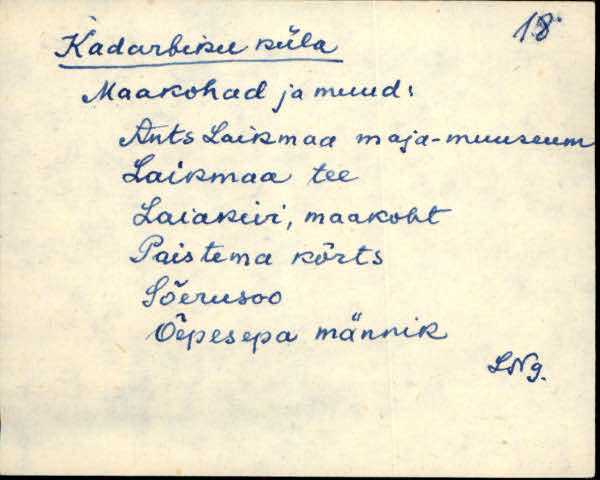 18.
Kadarbiku küla
Maakohad ja muud:
Ants Laikmaa maja-muuseum
Laikmaa tee
Laiakivi, maakoht
Paistema kõrts
Sõerusoo
Õepesepa männik
LNg.